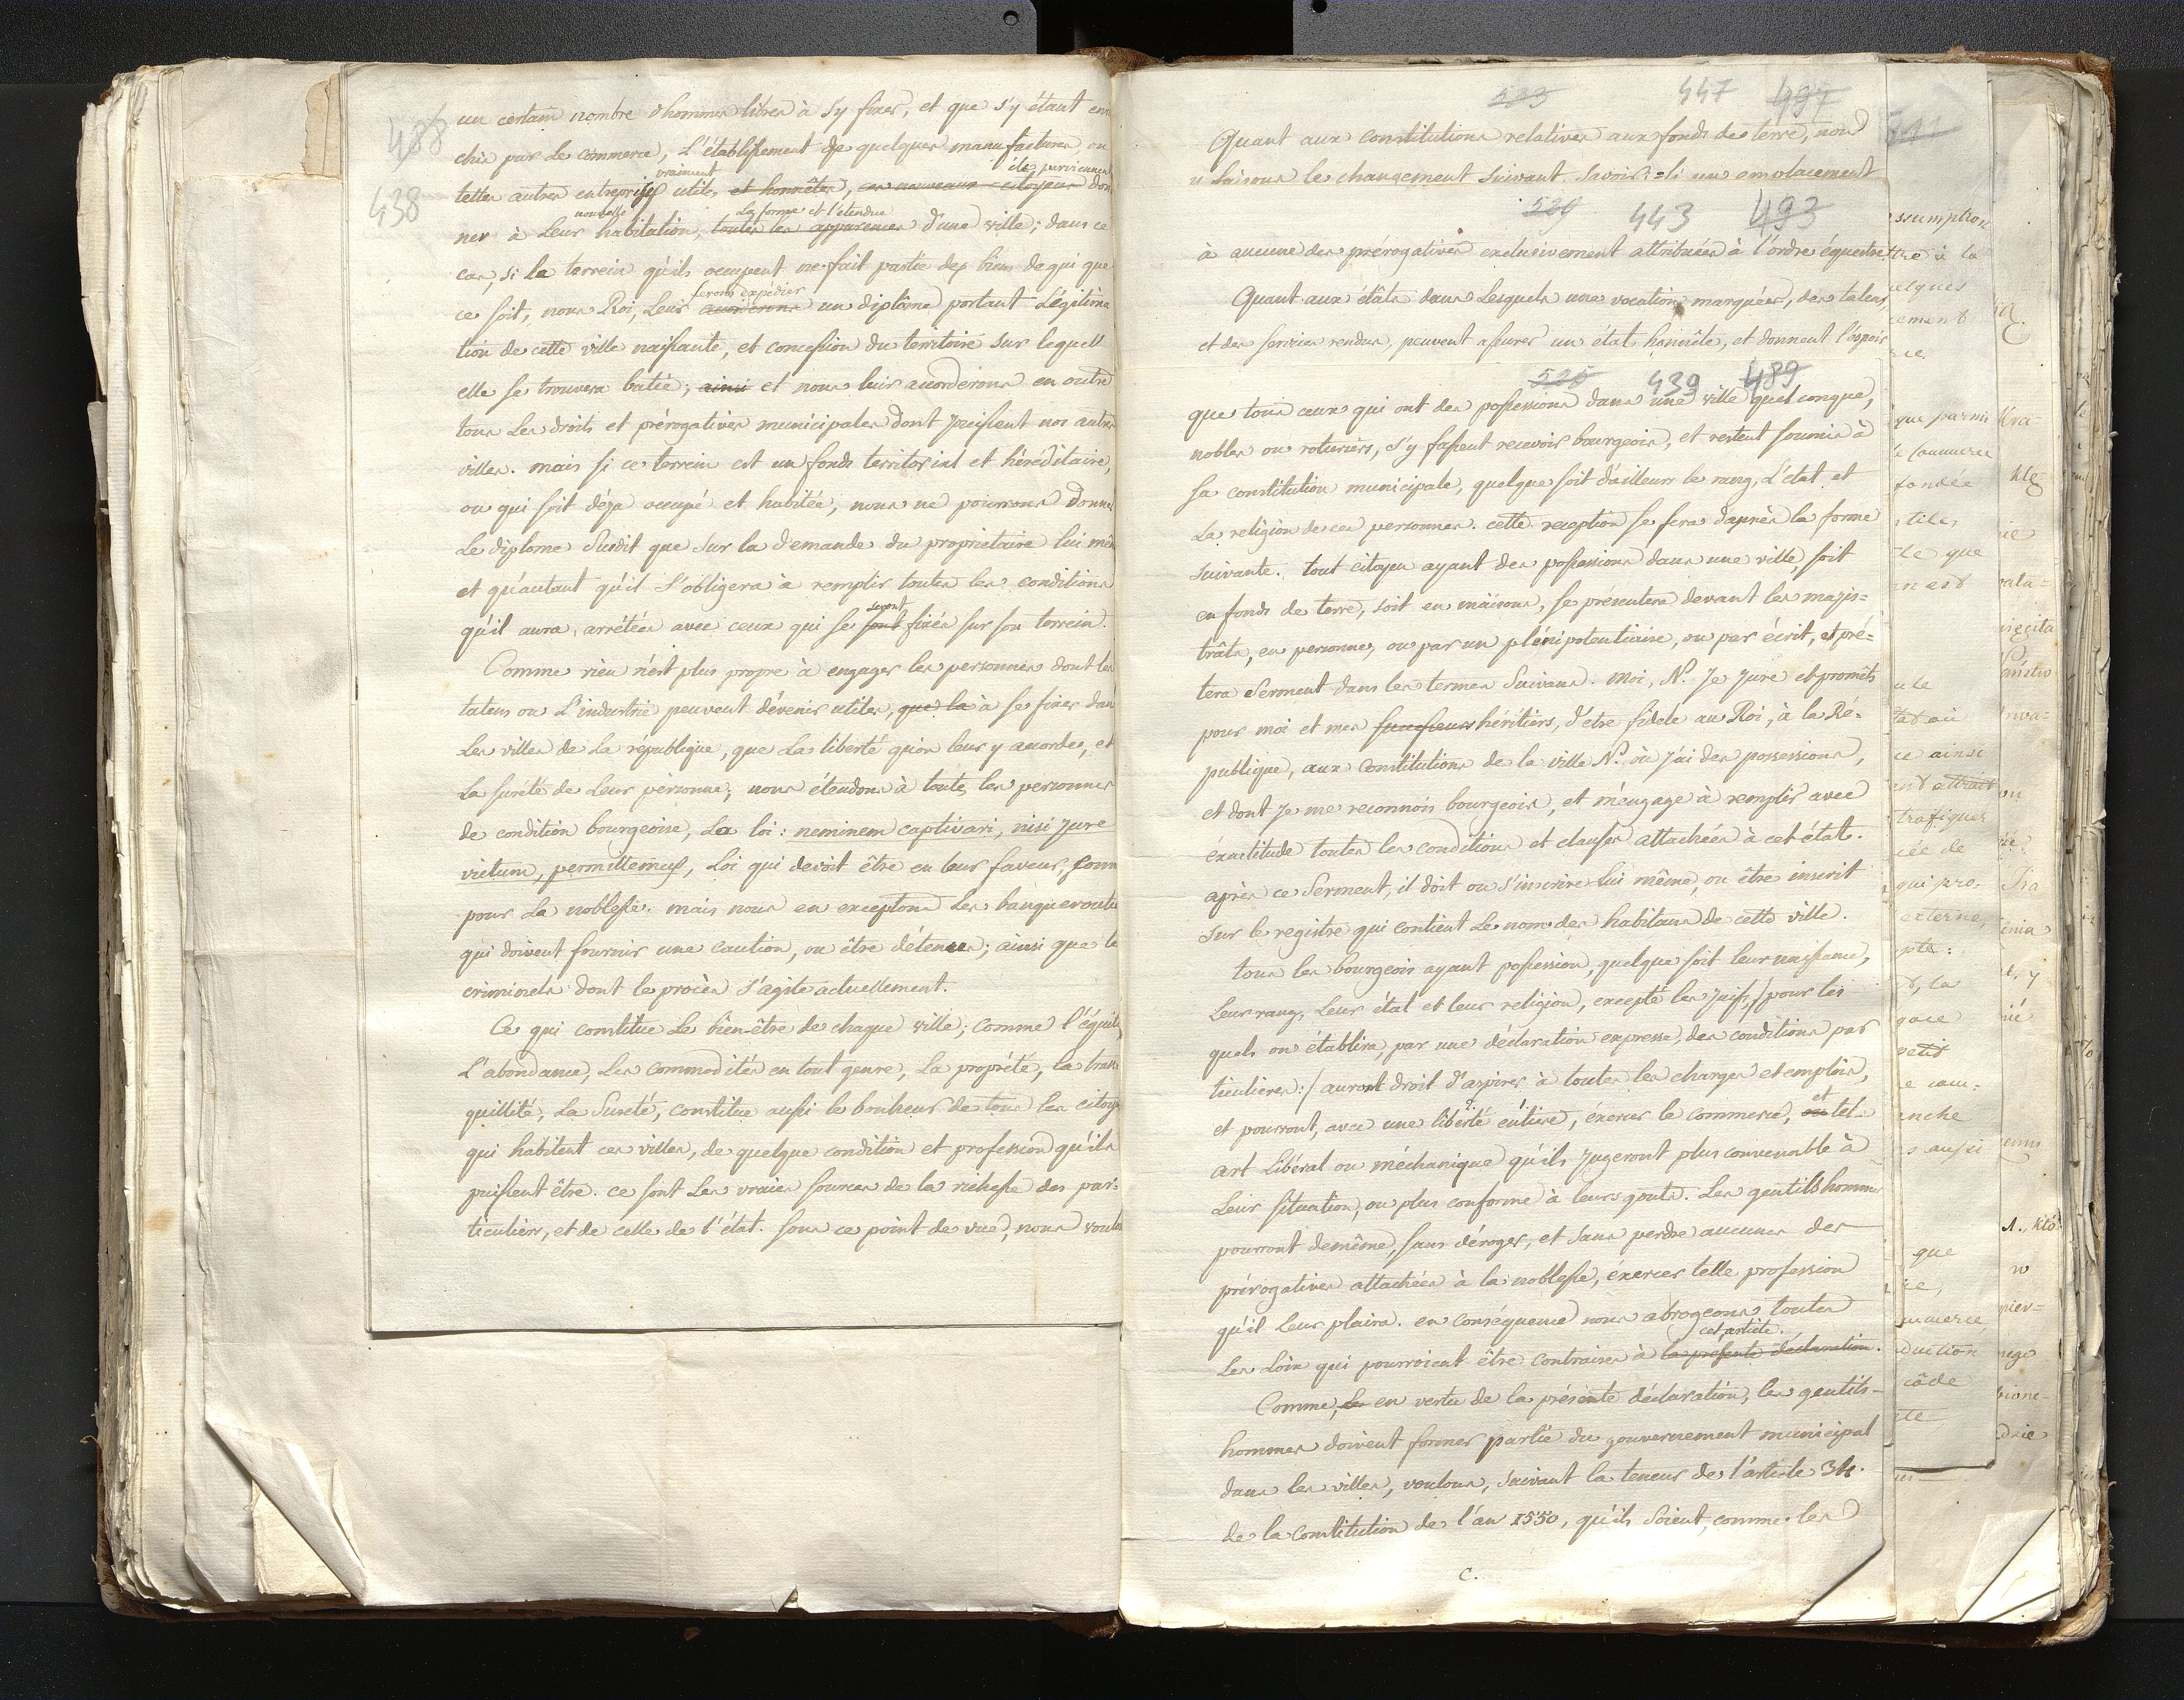 488
438
un certain nombre d'hommes libres à s'y fixer, et que s'y étant en
chis par le commerce, L'établissement de quelques manufactures, ou
vraiment ils parviennent
telles autres entreprises utiles et honnêtes, ces nouveaux citoyens don
nouvelle La forme et l'étendue
ner à Leur habitation, toutes les apparences d'une ville; dans ce
cas, si le terrein qu'ils occupent ne fait partie des biens de qui que
ferons expédier
ce soit, nous Roi, Leur accorderons un diplôme portant Légitima
tion de cette ville naissante, et concession du territoire sur lequell
elle se trouvera batie; ainsi et nous leur accorderons en outre
tous Les droits et prérogatives municipales dont jouissent nos autres
villes. mais si ce terrein est un fonds territorial et héréditaire,
ou qui soit déja occupé et habitée, nous ne pourrons donner
Le diplome Susdit que sur la demande du proprietaire lui mêm
et qu'autant qu'il s'obligera à remplir toutes les conditions
seront
qu'il aura arrêtées avec ceux qui se sont fixés sur son terrein.
Comme rien n'est plus propre à engager les personnes dont les
talens ou L'industrie peuvent devenir utiles, que la à se fixer dan
Les villes de La république, que La liberté qu'on leur y accorde, et
La sureté de Leur personne; nous étendons à toutes les personnes
de condition bourgeoise, La loi: neminem captivari, nisi jure
victum, permittemus, Loi qui devoit être en leur faveur, comm
pour La noblesse. mais nous en exceptons Les banqueroutie
qui doivent fournir une caution, ou être détenus; ainsi que le
criminels dont le procès s'agite actuellement.
Ce qui constitue Le bien-être de chaque ville; comme l'équité,
L'abondance, Les commodités en tout genre, La propreté, la tran
quillité, La Sureté, constitue aussi le bonheur de tous les citoye
qui habitent ces villes, de quelque condition et profession qu'ils
puissent être. ce sont Les vraies sources de la richesse des par=
ticuliers, et de celle de l'état. sous ce point de vue, nous voulo
533 447 497
Quant aux constitutions relatives aux fonds de terre, nous
faisons le changement Suivant. Savoir: si un emplacement
529 443 493
à aucune des prérogatives exclusivement attribuées à l'ordre équestre.
Quant aux états dans Lesquels une vocation marquée, des talens,
et des services rendus, peuvent assurer un état honnête, et donnent l'espoir
525 439 489
que tous ceux qui ont des possessions dans une ville quelconque,
nobles ou roturiers, s'y fassent recevoir bourgeois, et restent soumis à
sa constitution municipale, quelque soit d'ailleurs le rang, L'état et
La religion de ces personnes. cette reception se fera d'après la forme
suivante. tout citoyen ayant des possessions dans une ville, soit
en fonds de terre, soit en maisons, se presentera devant les magis=
trâts, en personne, ou par un plénipotentiaire, ou par écrit, et prê=
tera Serment dans les termes Suivans. Moi, N. Je Jure et promêts
pour moi et mes successeurs héritiers, d'etre fidele au Roi, à la Ré=
publique, aux Constitutions de la ville N. où j'ai des possessions,
et dont Je me reconnois bourgeois, et m'engage à remplir avec
éxactitude toutes les conditions et clauses attachées à cet état.
après ce Serment, il doit ou s'inscrire lui même, ou être inscrit
sur le registre qui contient Le nom des habitans de cette ville.
tous les bourgeois ayant possession, quelque soit leur naissance,
Leur rang, Leur état et leur religion, excepté les Juifs, /pour les
quels on établira, par une déclaration expresse, des conditions par
ticulieres:/ auront droit d'aspirer à toutes les charges et emplois,
et pourront, avec une liberté entiere, éxercer le commerce, ou et tels
art Libéral ou méchanique qu'ils Jugeront plus convenable à
Leur situation, ou plus conforme à leurs gouts. Les gentilshommes
pourront demême, sans déroger, et sans perdre aucunes des
prérogatives attachées à la noblesse, éxercer telle profession
qu'il Leur plaira. en conséquence nous abrogeons toutes
cet article.
Les Loix qui pourroient être contraires à la présente déclaration.
Comme, les en vertu de la présente déclaration, les gentils-
hommes doivent former partie du gouvernement municipal
dans les villes, voulons, suivant la teneur de l'article 34.
de la constitution de l'an 1550, qu'ils soient, comme les
C.